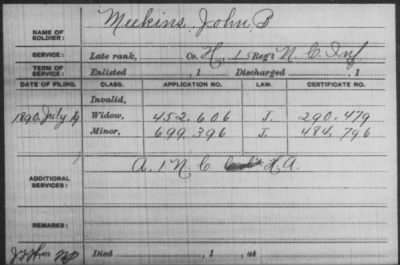 NAME OF SOLDIER: Meekins, John B
SERVICE: Late rank, Co. H, 1 Reg't N. C. Inf
TERM OF SERVICE: Enlisted , 1 Discharged , 1
DATE OF FILING. CLASS. APPLICATION NO. LAW. CERTIFICATE NO.
Invalid,
1890 July Widow, 452.606 J. 290.479
Minor, 699,396 J. 484,796
ADDITIONAL SERVICES: A. 1 N. C. H. A.
REMARKS:
Died , 1 , at